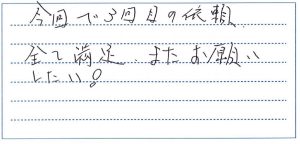 今回で3回目の依頼.
全て満足.またお願い
したい!